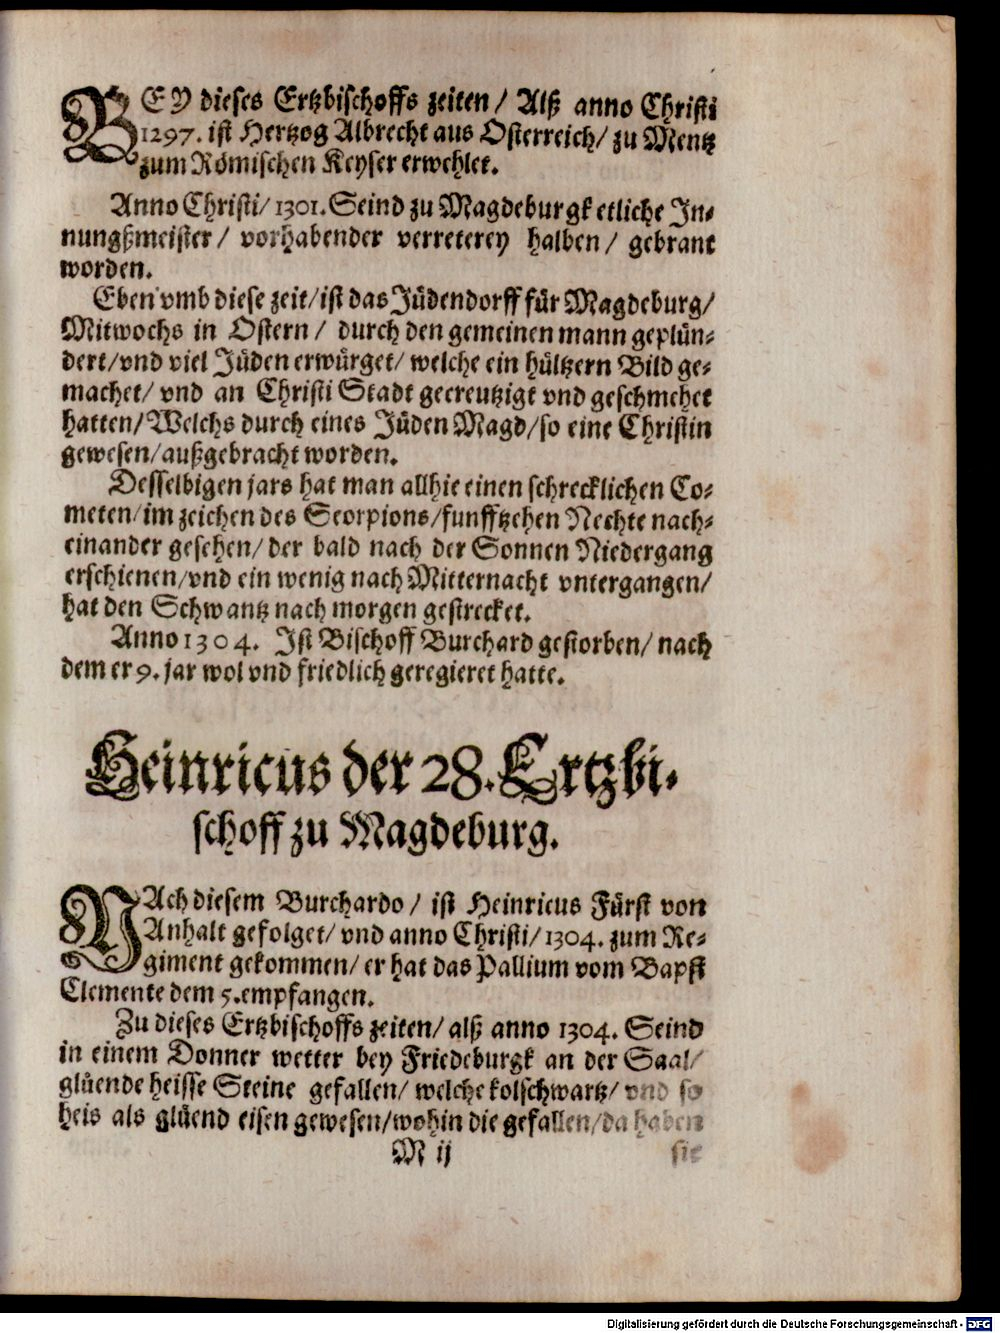 BEY dieses Ertzbischoffs zeiten / Alß anno Christi
1297. ist Hertzog Albrecht aus Osterreich / zu Mentz
zum Römischen Keyser erwehlet.
Anno Christi / 1301. Seind zu Magdeburgk etliche In⸗
nungßmeister / vorhabender verreterey halben / gebrant
worden.
Eben vmb diese zeit / ist das Jüdendorff für Magdeburg /
Mitwochs in Ostern / durch den gemeinen mann geplün⸗
dert / vnd viel Jüden erwürget / welche ein hültzern Bild ge⸗
machet / vnd an Christi Stadt gecreutzigt vnd geschmehet
hatten / Welchs durch eines Jüden Magd / so eine Christin
gewesen / außgebracht worden.
Desselbigen jars hat man allhie einen schrecklichen Co⸗
meten / im zeichen des Scorpions / funfftzehen Nechte nach⸗
einander gesehen / der bald nach der Sonnen Niedergang
erschienen / vnd ein wenig nach Mitternacht vntergangen /
hat den Schwantz nach morgen gestrecket.
Anno 1304. Ist Bischoff Burchard gestorben / nach
dem er 9. jar wol vnd friedlich geregieret hatte.
Heinricus der 28. Ertzbi⸗
schoff zu Magdeburg.
NAch diesem Burchardo / ist Heinricus Fürst von
Anhalt gefolget / vnd anno Christi / 1304. zum Re⸗
giment gekommen / er hat das Pallium vom Bapst
Clemente dem 5. empfangen.
Zu dieses Ertzbischoffs zeiten / alß anno 1304. Seind
in einem Donner wetter bey Friedeburgk an der Saal /
glüende heisse Steine gefallen / welche kolschwartz / vnd so
heis als glüend eisen gewesen / wohin die gefallen / da haben
M ij
sie
Digitalisierung gefördert durch die Deutsche Forschungsgemeinschaft - DFG